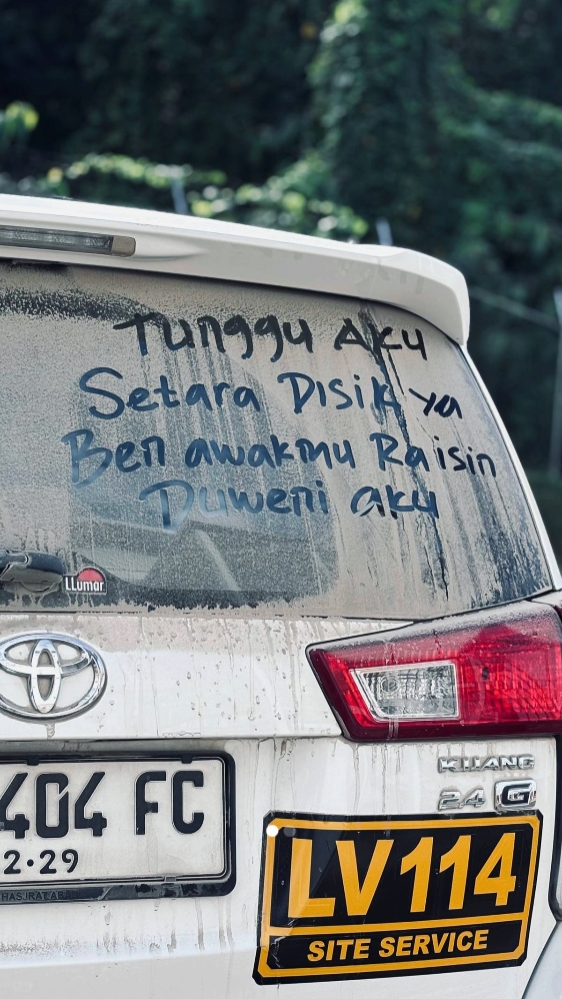 Tunggu Aku
Setara Disik ya
Ben awakmu Raisin
Duweni aku
LLumar
KIJANG
2.4 G
404 FC
2·29
LV114
SITE SERVICE